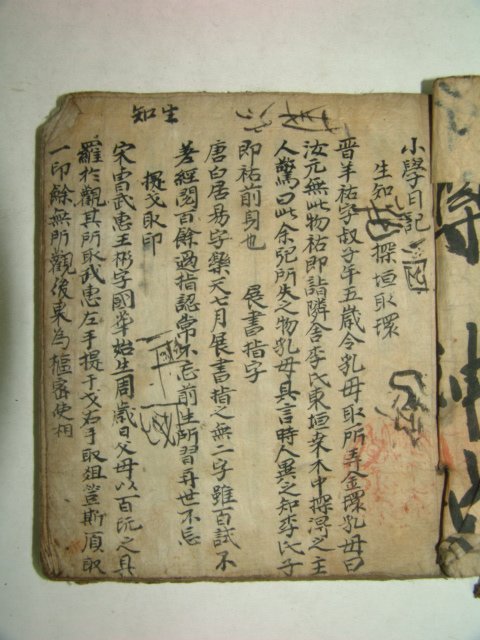 生知
小學日記
生知 探垣取環
晋羊祜字叔子年五歲令乳母取所弄金環乳母曰
汝元無此物祜即詣隣舍李氏東垣桒木中探淂之主
人驚曰此余兒所失之物乳母具言時人異之知李氏子
即祜前身也 展書指字
唐白居易字樂天七月展書指之無二字雖百試不
差經閱百餘過指認常不忘前生所習再世不忘
提戈取印
宋曺武惠王彬字國華始生周歲日父母以百玩之具
羅於觀其所取武惠左手提干戈右手取俎豆斯湏取
一印餘無所觀後果為樞密使相